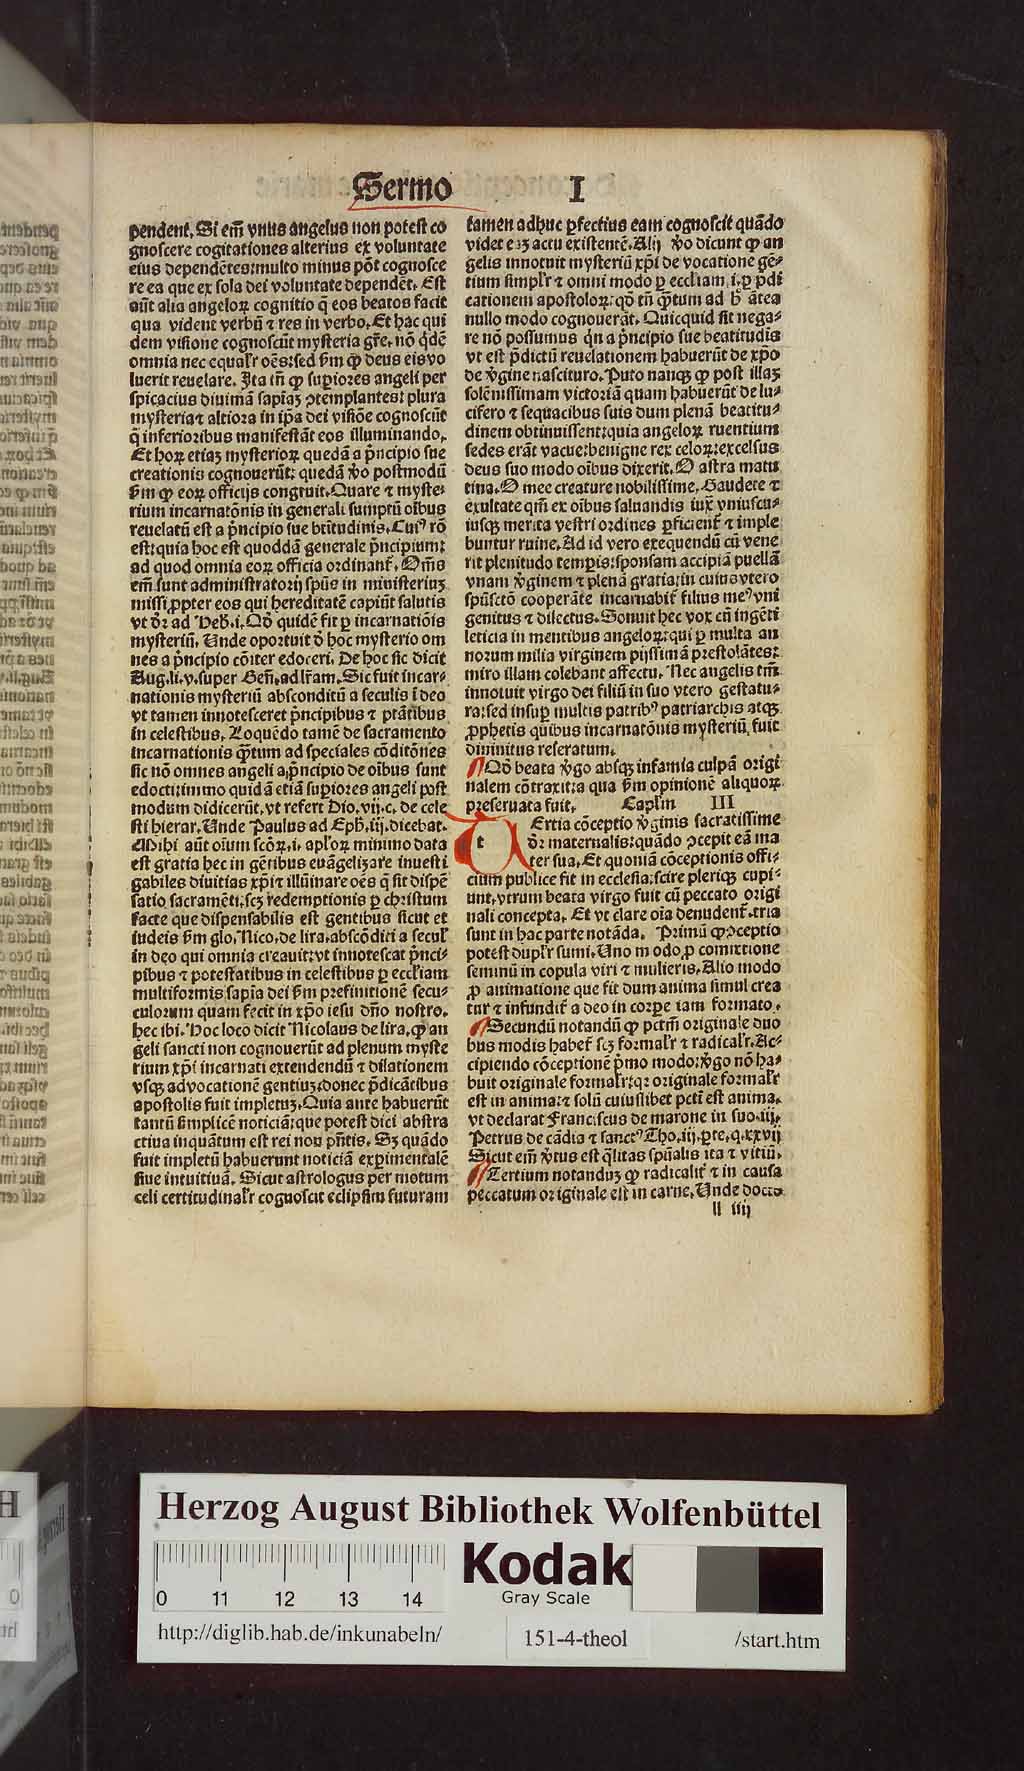 Sermo I
pendent. Si em̄ vnus angelus non potest co
gnoscere cogitationes alterius ex voluntate
eius dependētes: multo minus pōt cognosce
re ea que ex sola dei voluntate dependēt. Est
aūt alia angeloꝝ cognitio q̄ eos beatos facit
qua vident verbū ⁊ res in verbo. Et hac qui
dem visione cognoscūt mysteria gr̄e. nō q̄dē
omnia nec equalr̄ oēs: sed ẜm ꝙ deus eis vo
luerit reuelare. Ita tn̄ ꝙ suꝑiores angeli per
spicacius diuinā sapīaꝫ ↄtemplantes: plura
mysteria ⁊ altiora in ip̄a dei visiōe cognoscūt
q̄ inferioribus manifestāt eos illuminando.
Et hoꝝ etiaꝫ mysterioꝝ quedā a p̄ncipio sue
creationis cognouerūt: quedā ꝟo postmodū
ẜm ꝙ eoꝝ officijs congruit. Quare ⁊ myste⸗
rium incarnatōnis in generali sumptū oībus
reuelatū est a p̄ncipio sue btītudinis. Cuiꝰ rō
est: quia hoc est quoddā generale p̄ncipium:
ad quod omnia eoꝝ officia ordinant᷑. Om̄s
em̄ sunt administratorij spūs in ministeriuꝫ
missi ꝓpter eos qui hereditatē capiūt salutis
vt dr̄ ad Heb̄. i. Qd̄ quidē fit ꝑ incarnatiōis
mysteriū. Unde oportuit d̄ hoc mysterio om
nes a p̄ncipio cōiter edoceri. De hoc sic dicit
Aug. li. v. super Gen̄. ad lr̄am. Sic fuit incar⸗
nationis mysteriū absconditū a seculis ī deo
vt tamen innotesceret p̄ncipibus ⁊ ptātibus
in celestibus. Loquēdo tamē de sacramento
incarnationis q̄ꝫtum ad speciales cōditōnes
sic nō omnes angeli a p̄ncipio de oībus sunt
edocti: immo quidā etiā suꝑiores angeli post
modum didicerūt. vt refert Dio. vij. c. de cele
sti hierar. Unde Paulus ad Eph̄. iij. dicebat.
Mihi aūt oīum scōꝝ. i. apl̄oꝝ minimo data
est gratia hec in gētibus euāgelizare inuesti
gabiles diuitias xp̄i ⁊ illūinare oēs q̄ sit dispē
satio sacramēti: scꝫ redemptionis ꝑ christum
facte que dispensabilis est gentibus sicut et
iudeis ẜm glo. Nico. de lira. abscōditi a secul̓
in deo qui omnia creauit: vt innotescat p̄nci⸗
pibus ⁊ potestatibus in celestibus ꝑ eccl̓iam
multiformis sapīa dei ẜm prefinitionē secu⸗
culorum quam fecit in xp̄o iesu dn̄o nostro.
hec ibi. Hoc loco dicit Nicolaus de lira. ꝙ an
geli sancti non cognouerūt ad plenum myste
rium xp̄i incarnati extendendū ⁊ dilationem
vsqꝫ ad vocationē gentiuꝫ. donec p̄dicātibus
apostolis fuit impletuꝫ. Quia ante habuerūt
tantū simplicē noticiā: que potest dici abstra
ctiua inquātum est rei non pn̄tis. Sꝫ quādo
fuit impletū habuerunt noticiā exꝑimentalē
siue intuitiuā. Sicut astrologus per motum
celi certitudinalr̄ cognoscit eclipsim futuram
tamen adhuc ꝑfectius eam cognoscit quādo
videt eaꝫ actu existentē. Alij ꝟo dicunt ꝙ an
gelis innotuit mysteriū xp̄i de vocatione gē⸗
tium simpl̓r ⁊ omni modo ꝑ eccliam. i. ꝑ p̄di
cationem apostoloꝝ: qd̄ tn̄ q̄ꝫtum ad h̄ āt̄ea
nullo modo cognouerāt. Quicquid sit nega⸗
re nō possumus qn̄ a p̄ncipio sue beatitudīs
vt est p̄dictū reuelationem habuerūt de xp̄o
de ꝟgine nascituro. Puto nanqꝫ ꝙ post illaꝫ
solēnissimam victoriā quam habuerūt de lu⸗
cifero ⁊ sequacibus suis dum plenā beatitu⸗
dinem obtinuissent: quia angeloꝝ ruentium
sedes erāt vacue: benigne rex celoꝝ: excelsus
deus suo modo oībus dixerit. O astra matu
tina. O mee creature nobilissime. Gaudete ⁊
exultate qm̄ ex oībus saluandis iuxͣ vniuscu⸗
iusqꝫ merita vestri ordines ꝑficient᷑ ⁊ imple
buntur ruine. Ad id vero exequendū cū vene
rit plenitudo temꝑis: sponsam accipiā puellā
vnam ꝟginem ⁊ plenā gratia: in cuius vtero
spūsctō cooperāte incarnabit᷑ filius meꝰ vni
genitus ⁊ dilectus. Sonuit hec vox cū ingēti
leticia in mentibus angeloꝝ: qui ꝑ multa an
norum milia virginem pijssimā prestolātes:
miro illam colebant affectu. Nec angelis tm̄
innotuit virgo dei filiū in suo vtero gestatu⸗
ra: sed insuꝑ multis patribꝰ patriarchis atqꝫ
ꝓphetis quibus incarnatōnis mysteriū fuit
diuinitus reseratum.
¶ Qd̄ beata ꝟgo absqꝫ infamia culpā origi
nalem cōtraxit: a qua ẜm opinionē aliquoꝝ
preseruata fuit. Caplm̄ III
t Ertia cōceptio ꝟginis sacratissime
dr̄ maternalis: quādo ↄcepit eā ma
ter sua. Et quoniā cōceptionis offi⸗
cium publice fit in ecclesia: scire pleriqꝫ cupi⸗
unt. vtrum beata virgo fuit cū peccato origi
nali concepta. Et vt clare oīa denudent᷑. tria
sunt in hac parte notāda. Primū ꝙ ↄceptio
potest dupl̓r sumi. Uno modo ꝓ comixtione
seminū in copula viri ⁊ mulieris. Alio modo
ꝓ animatione que fit dum anima simul crea
tur ⁊ infundit᷑ a deo in corꝑe iam formato.
¶ Secundū notandū ꝙ pctm̄ originale duo
bus modis habet᷑ scꝫ formal̓r ⁊ radical̓r. Ac⸗
cipiendo cōceptionē p̄mo modo: ꝟgo nō ha⸗
buit originale formal̓r: qꝛ originale formal̓r
est in anima: ⁊ solū cuiuslibet pcti est anima.
vt declarat Franciscus de marone in suo. iij.
Petrus de cādia ⁊ sanctꝰ Tho. iij. ꝑte. q. xxvij
Sicut em̄ ꝟtus est q̄litas spūalis ita ⁊ vitiū.
¶ Tertium notanduꝫ ꝙ radicalit᷑ ⁊ in causa
peccatum originale est in carne. Unde docto
ll iiij
Herzog August Bibliothek Wolfenbüttel
0 11 12 13 14
Kodak
Gray Scale
http://diglib.hab.de/inkunabeln/
151-4-theol
/start.htm